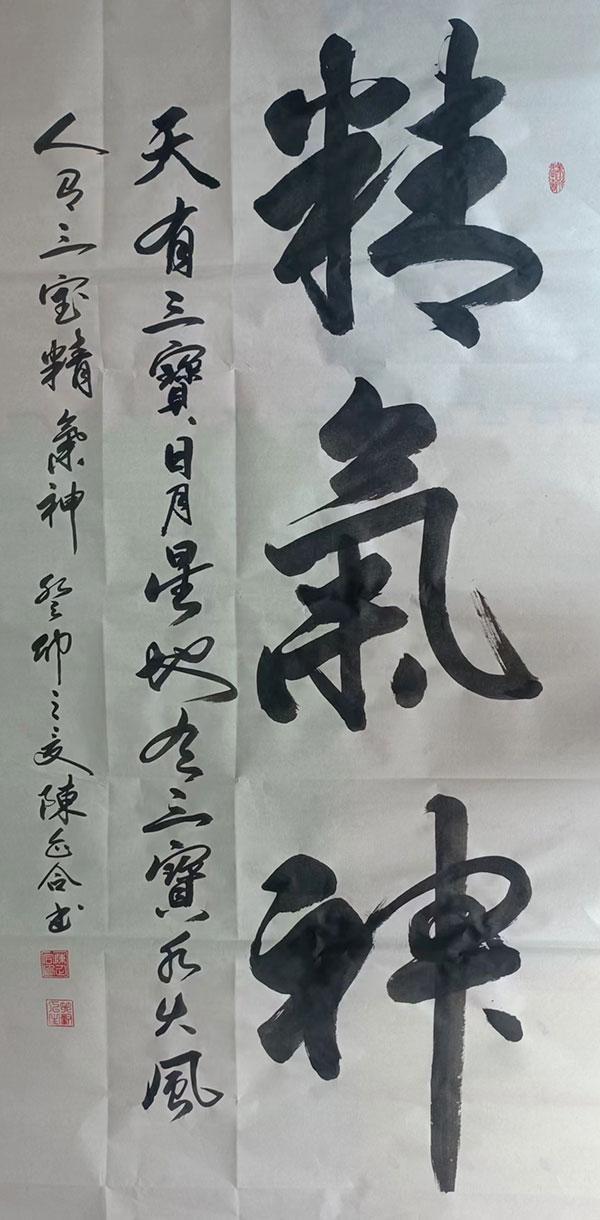 精氣神
天有三寶日月星地有三寶水火風
人有三宝精氣神 癸卯之夏陳 合书